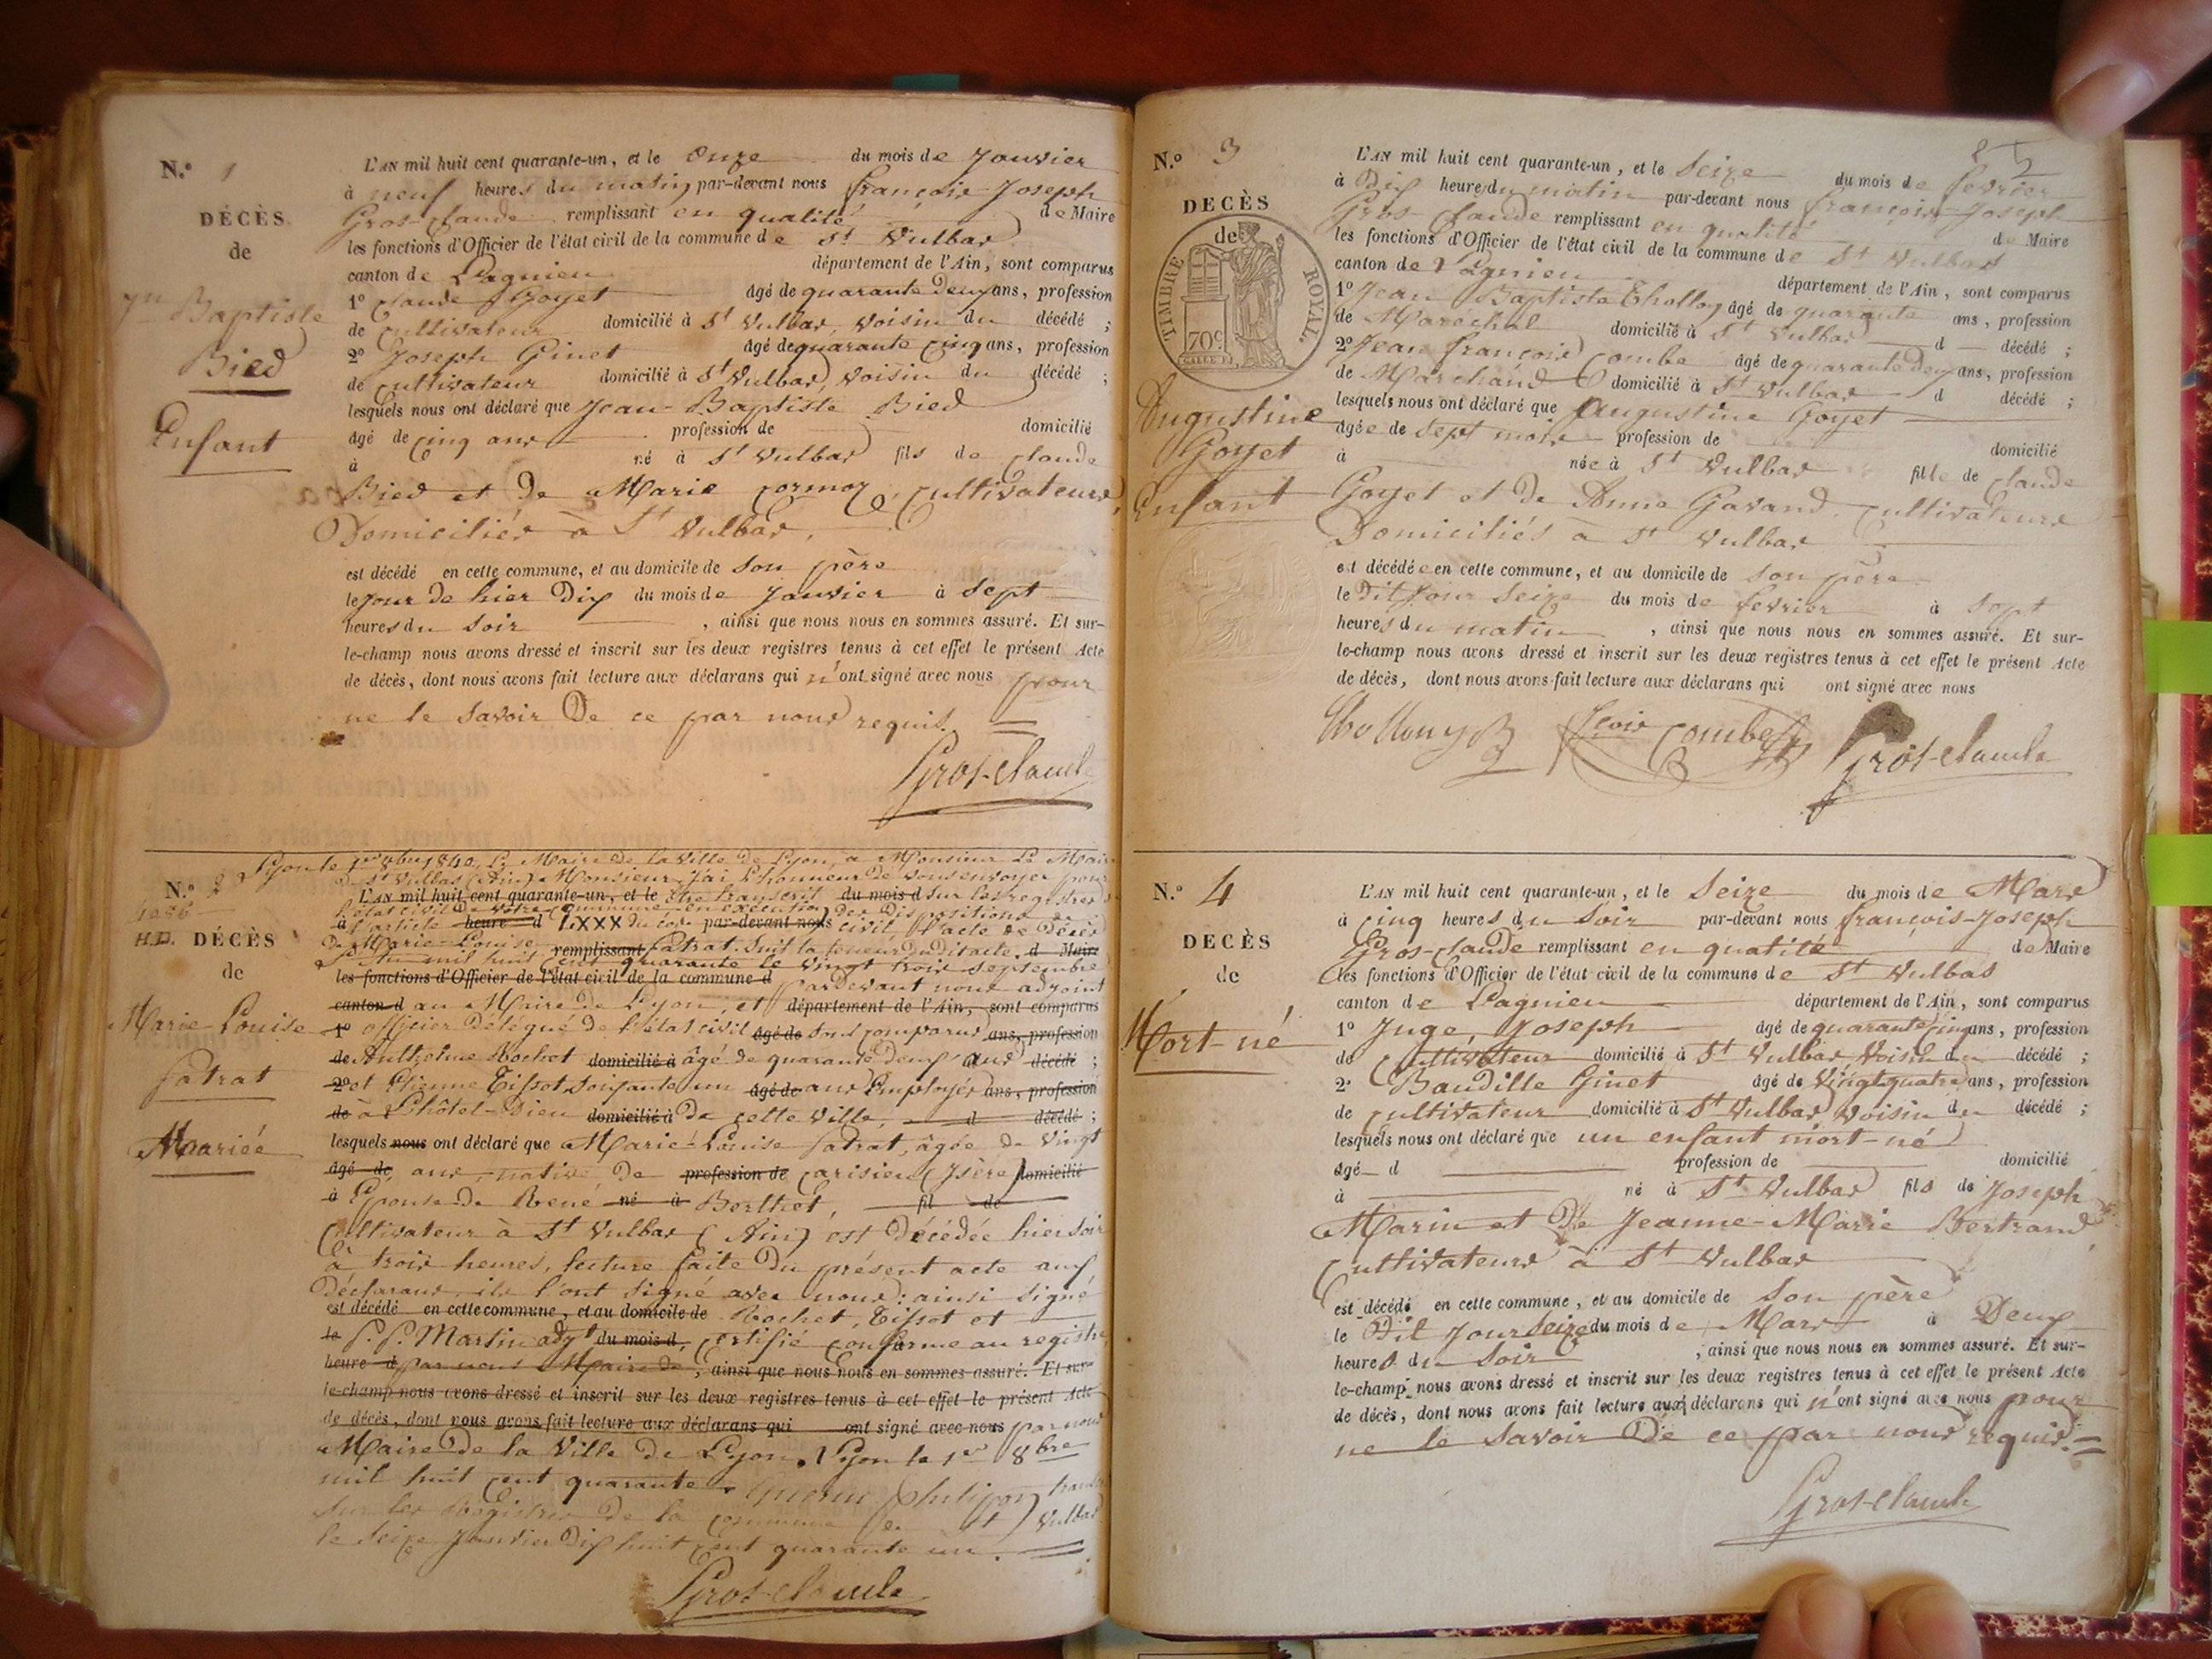 N.º 1
DÉCÈS
de
Jn Baptiste
Bied
Enfant
L'AN mil huit cent quarante-un, et le onze du mois de Janvier
à neuf heures du matin par-devant nous françois Joseph
Gros-Claude remplissant en qualité de Maire
les fonctions d'Officier de l'état civil de la commune de St Vulbas
canton de Lagnieu département de l'Ain, sont comparus
1º Claude Goyet âgé de quarante deux ans, profession
de cultivateur domicilié à St Vulbas, voisin du décédé ;
2º Joseph Ginet âgé de quarante cinq ans, profession
de cultivateur domicilié à St Vulbas, voisin du décédé ;
lesquels nous ont déclaré que Jean-Baptiste Bied
âgé de cinq ans profession de domicilié
à né à St Vulbas fils de Claude
Bied et de Marie Cormoz, cultivateurs,
Domiciliés à St Vulbas,
est décédé en cette commune, et au domicile de son père
le jour de hier Dix du mois de Janvier à sept
heures du soir , ainsi que nous nous en sommes assuré. Et sur-
le-champ nous avons dressé et inscrit sur les deux registres tenus à cet effet le présent Acte
de décès, dont nous avons fait lecture aux déclarans qui n'ont signé avec nous pour
ne le savoir De ce par nous requis.
Gros-Claude
N.º 2
H.D. DÉCÈS
de
Marie-Louise
fatrat
Mariée
Lyon le 1er 8bre 1840, Le Maire de la ville de Lyon, a Monsieur Le Maire
de St Vulbas (Ain) Monsieur, J'ai l'honneur de vous envoyer pour
L'AN mil huit cent quarante-un, et le être transcrit du mois d sur les registres de
l'état civil de votre commune en exécution des dispositions de
à l'article heure d LXXX du code par-devant nous civil, l'acte de Décès
De Marie-Louise remplissant fatrat. Suit la teneur du dit acte. d Maire
L'an mil huit cent quarante le vingt trois septembre
les fonctions d'Officier de l'état civil de la commune d pardevant nous adjoint
canton d au Maire de Lyon, et département de l'Ain, sont comparus
1º officier Délégué de l'état civil âgé de sont comparus ans, profession
de Anthelme Rochet domicilié à âgé de quarante deux ans décédé ;
2º et Etienne Tissot soixante un âgé de ans Employés ans, profession
de à L'hôtel-Dieu domicilié à De cette ville, d décédé ;
lesquels nous ont déclaré que Marie-Louise fatrat, âgée de vingt
âgé de ans, native de profession de Parisieu (Isère) domicilié
à Epouse de René né à Berthet, fil de
Cultivateur à St Vulbas (Ain) est décédée hier soir
à trois heures, lecture faite du présent acte aux
déclarans, ils l'ont signé avec nous : ainsi signé
est décédé en cette commune, et au domicile de Rochet, Tissot et
le P. P. Martin adjt du mois d, certifié conforme au registre
heure d par nous Maire de , ainsi que nous nous en sommes assuré. Et sur-
le-champ nous avons dressé et inscrit sur les deux registres tenus à cet effet le présent Acte
de décès, dont nous avons fait lecture aux déclarans qui ont signé avec nous par nous
Maire De la Ville de Lyon. Lyon le 1er 8bre
mil huit cent quarante.
sur les Registres de la commune de St Vulbas
le seize Janvier Dix huit cent quarante un.
Gros-Claude
N.º 3
DÉCÈS
de
TIMBRE ROYAL.
70c
Augustine
Goyet
Enfant
L'AN mil huit cent quarante-un, et le Seize du mois de fevrier
à Dix heures du matin par-devant nous françois Joseph
Gros-Claude remplissant en qualité de Maire
les fonctions d'Officier de l'état civil de la commune de St Vulbas
canton de Lagnieu département de l'Ain, sont comparus
1º Jean Baptiste Tholloy âgé de quarante ans, profession
de Maréchal domicilié à St Vulbas d décédé ;
2º Jean françois Combe âgé de quarante deux ans, profession
de Marchand domicilié à St Vulbas d décédé ;
lesquels nous ont déclaré que Augustine Goyet
âgée de sept mois profession de domicilié
à née à St Vulbas fille de Claude
Goyet et de Anne Gavand, cultivateurs
Domiciliés à St Vulbas
est décédée en cette commune, et au domicile de son père
le Dit jour Seize du mois de fevrier à sept
heures du matin , ainsi que nous nous en sommes assuré. Et sur-
le-champ nous avons dressé et inscrit sur les deux registres tenus à cet effet le présent Acte
de décès, dont nous avons fait lecture aux déclarans qui ont signé avec nous
Combe Gros-Claude
N.º 4
DÉCÈS
de
Mort-né
L'AN mil huit cent quarante-un, et le Seize du mois de Mars
à cinq heures du soir par-devant nous françois-Joseph
Gros-Claude remplissant en qualité de Maire
les fonctions d'Officier de l'état civil de la commune de St Vulbas
canton de Lagnieu département de l'Ain, sont comparus
1º Juge, Joseph âgé de quarante cinq ans, profession
de Cultivateur domicilié à St Vulbas, Voisin du décédé ;
2º Baudille Ginet âgé de Vingt quatre ans, profession
de cultivateur domicilié à St Vulbas voisin du décédé ;
lesquels nous ont déclaré que un enfant mort-né
âgé d profession de domicilié
à né à St Vulbas fils de Joseph
Marin et De Jeanne-Marie Bertrand
Cultivateurs à St Vulbas
est décédé en cette commune, et au domicile de Son père
le Dit jour seize du mois de Mars à Deux
heures du soir , ainsi que nous nous en sommes assuré. Et sur-
le-champ nous avons dressé et inscrit sur les deux registres tenus à cet effet le présent Acte
de décès, dont nous avons fait lecture aux déclarans qui n'ont signé avec nous pour
ne le savoir De ce par nous requis.
Gros-Claude